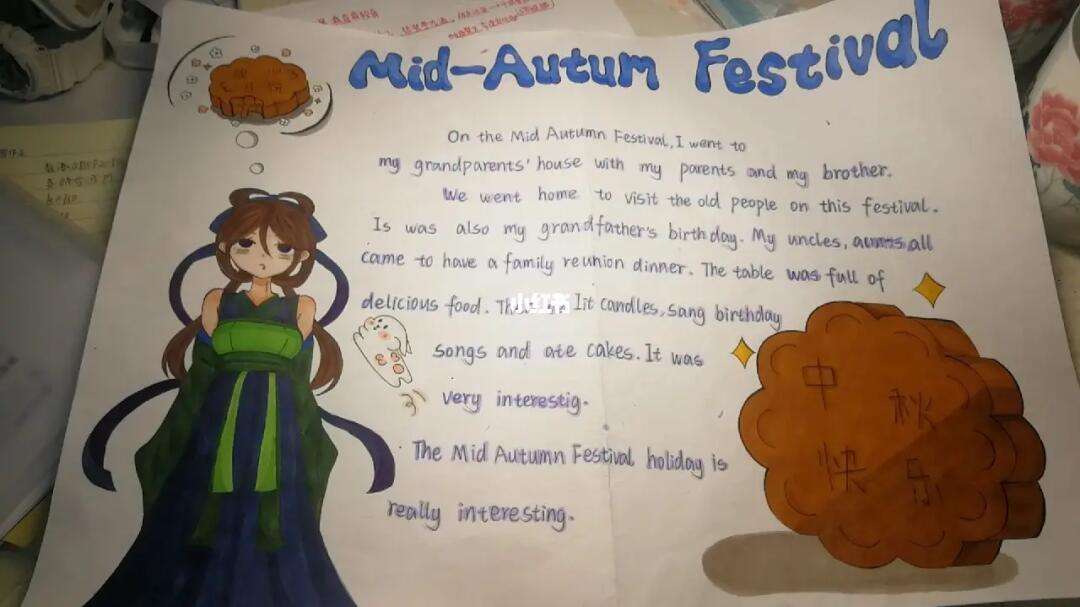 Mid-Autum Festival
On the Mid Autumn Festival, I went to
my grandparents' house with my parents and my brother.
We went home to visit the old people on this festival.
Is was also my grandfather's birthday. My uncles, aunts all
came to have a family reunion dinner. The table was full of
delicious food. lit candles, sang birthday
songs and ate cakes. It was
very interestig.
The Mid Autumn Festival holiday is
really interesting.
中秋
快乐
小红书